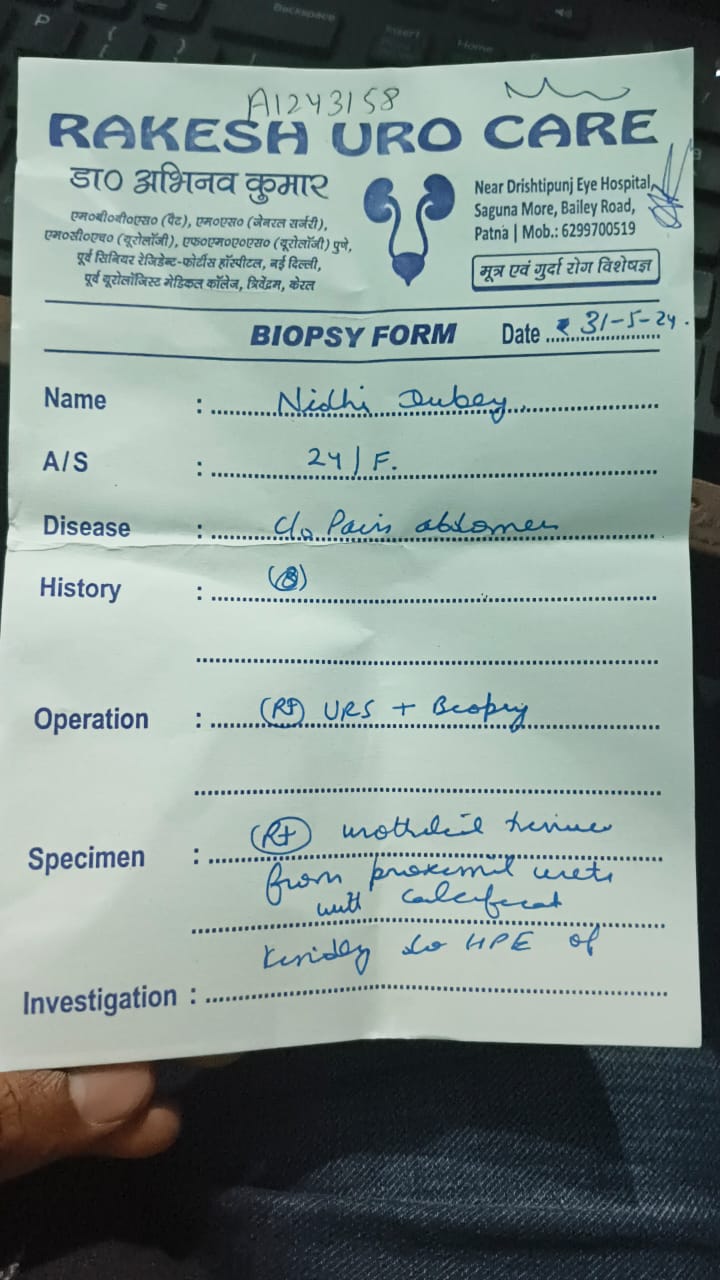 A1243158
RAKESH URO CARE
डा० अभिनव कुमार
एम०बी०बी०एस० (पैट), एम०एस० (जेनरल सर्जरी),
एम०सी०एच० (यूरोलॉजी), एफ०एम०ए०एस० (यूरोलॉजी) पुणे,
पूर्व सिनियर रेजिडेन्ट-फोर्टीस हॉस्पीटल, नई दिल्ली,
पूर्व यूरोलॉजिस्ट मेडिकल कॉलेज, त्रिवेंद्रम, केरल
Near Drishtipunj Eye Hospital,
Saguna More, Bailey Road,
Patna | Mob.: 6299700519
मूत्र एवं गुर्दा रोग विशेषज्ञ
BIOPSY FORM Date 31-5-24.
Name : Nidhi Dubey
A/S : 24/F.
Disease : C/o Pain abdomen
History :
Operation : (Rt) URS + Biopsy
Specimen : (Rt) urothelial tissue
from proximal
with
kindly do HPE of
Investigation :
Backspace
Insert
Home
P